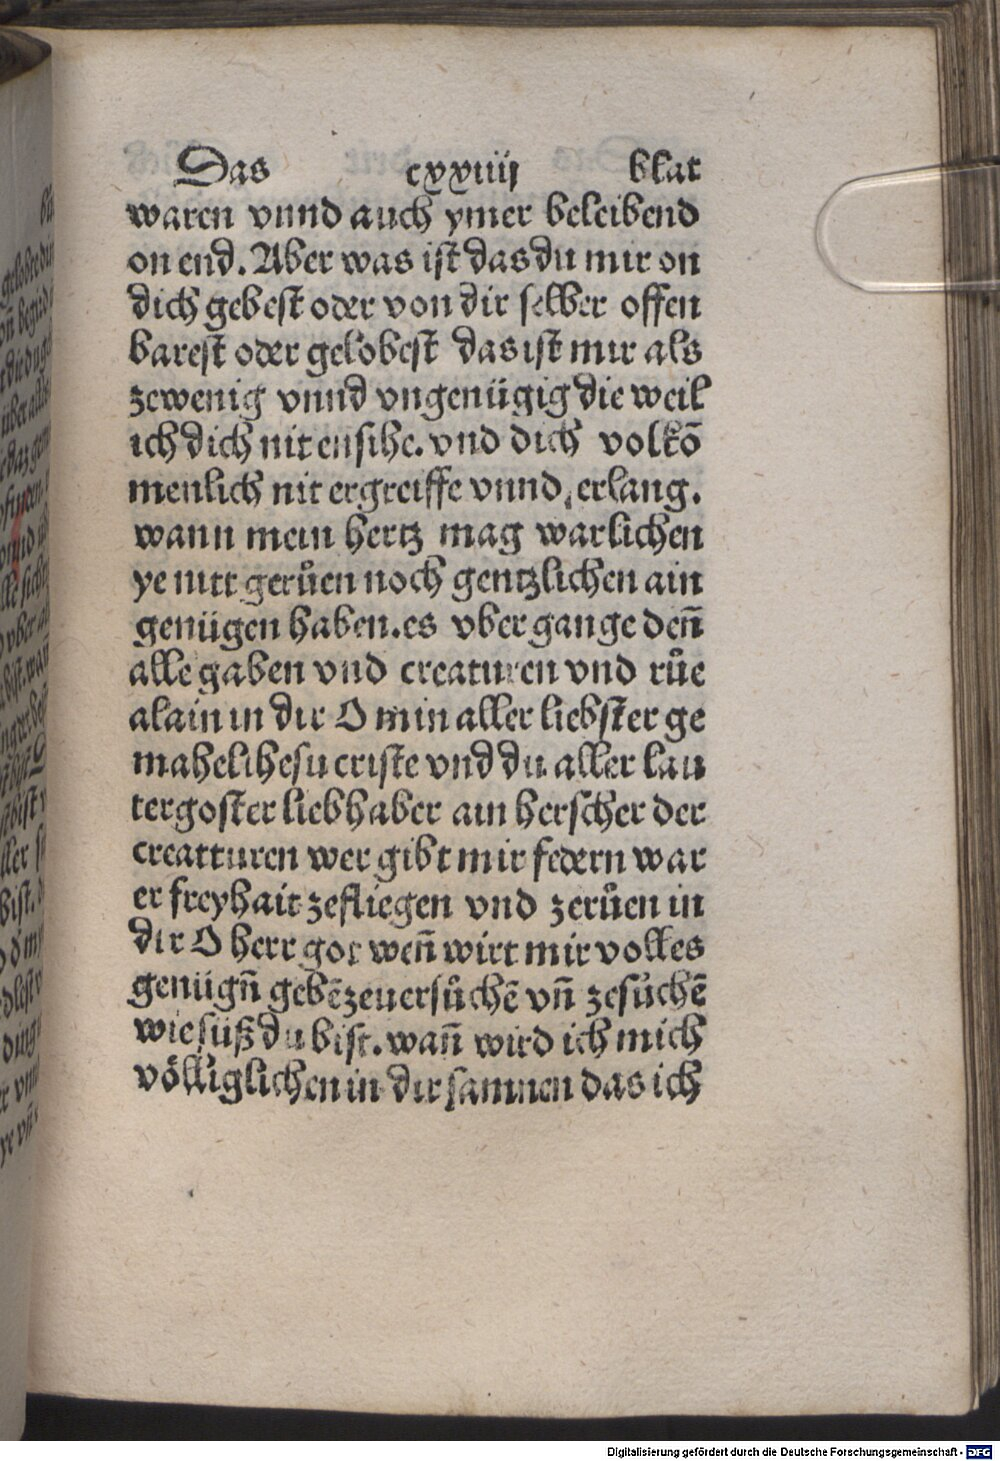 Das cxxiiij blat
waren vnnd auch ymer beleibend
on end. Aber was ist das du mir on
dich gebest oder von dir selber offen
barest oder gelobest das ist mir als
zewenig vnnd vngenügig die weil
ich dich nit ensihe. vnd dich volkō
menlich nit ergreiffe vnnd erlang.
wann mein hertz mag warlichen
ye nitt gerůen noch gentzlichen ain
genügen haben. es vbergange deñ
alle gaben vnd creaturen vnd růe
alain in dir O min aller liebster ge
mahel ihesu criste vnd du aller lau
tergoster liebhaber ain herscher der
creatturen wer gibt mir federn war
er freyhait zefliegen vnd zerůen in
dir O herr got weñ wirt mir volles
genügñ gebē zeuersůchē vñ zesůchē
wie süß du bist. wañ wird ich mich
völliglichen in dir samnen das ich
Digitalisierung gefördert durch die Deutsche Forschungsgemeinschaft - DFG